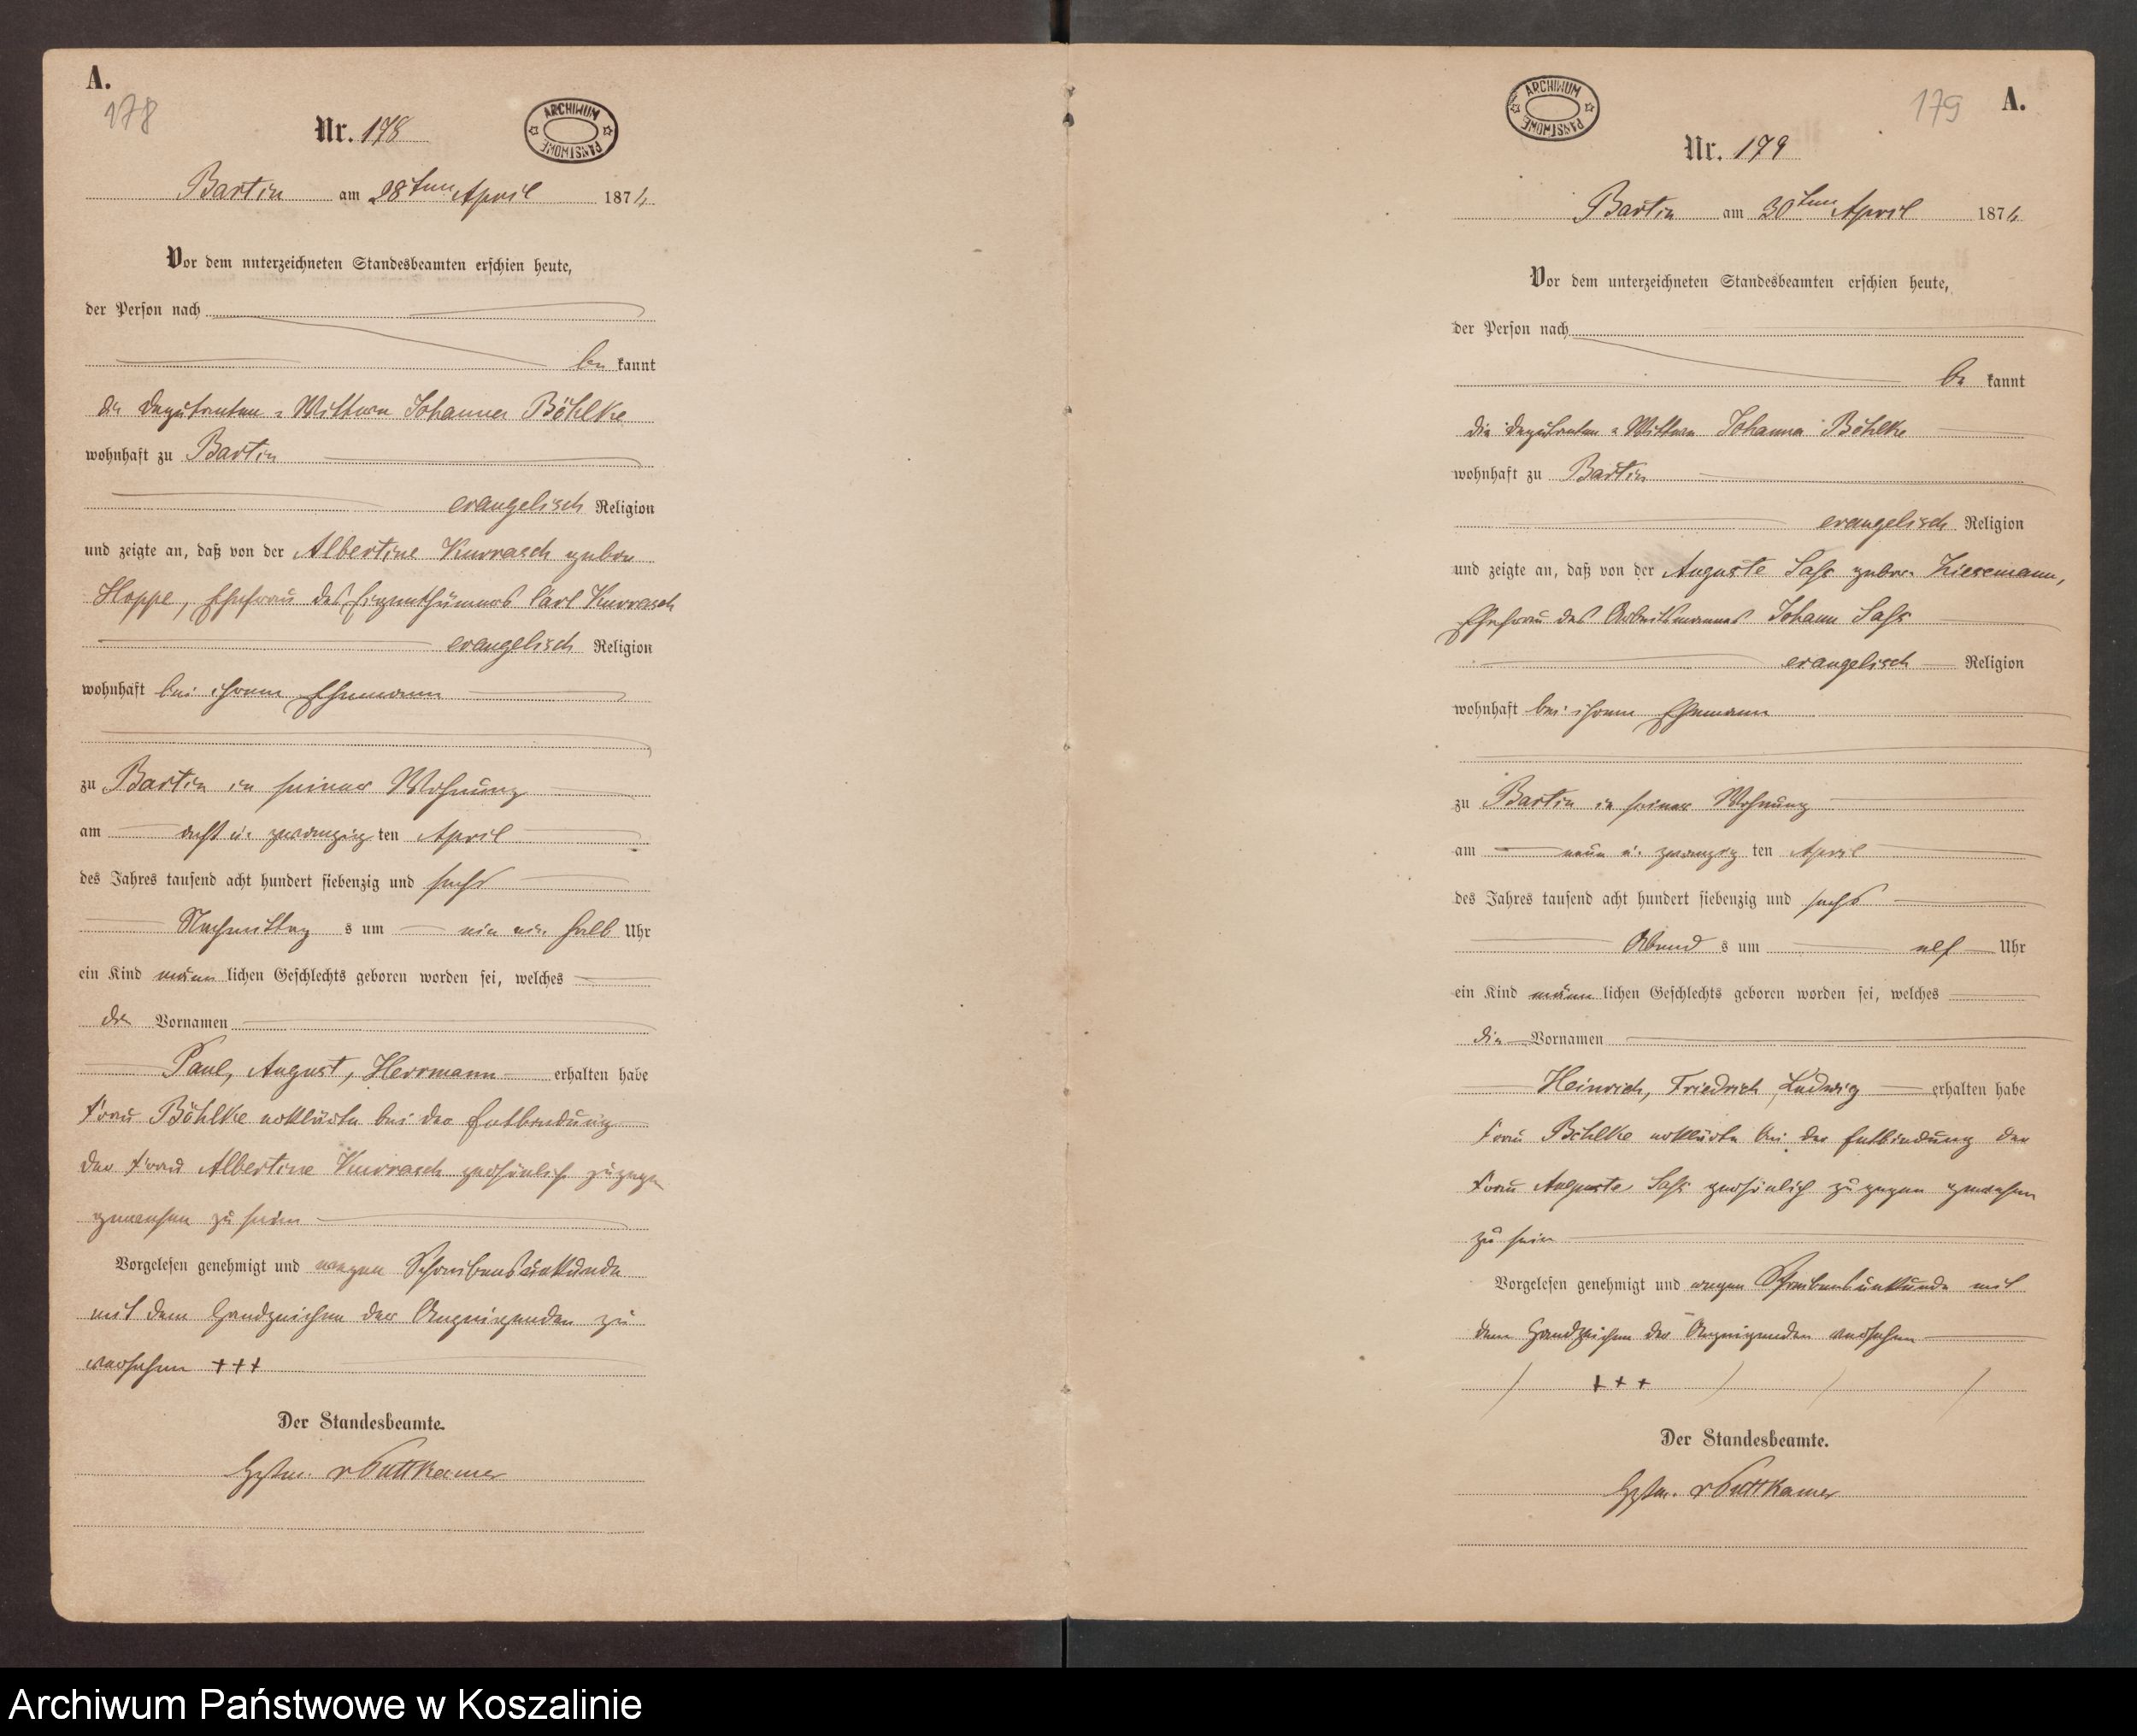 A.
178
Nr. 178
ARCHIWUM PAŃSTWOWE
Bartin am 28ten April 1876
Vor dem unterzeichneten Standesbeamten erschien heute,
der Person nach
be kannt
die Deputanten-Wittwe Johanna Böhlke
wohnhaft zu Bartin
evangelisch Religion
und zeigte an, daß von der Albertine Kurrasch gebor
Hoppe, Ehefrau des Eigenthümers Carl Kurrasch
evangelisch Religion
wohnhaft bei ihrem Ehemann
zu Bartin in seiner Wohnung
am acht u. zwanzig ten April
des Jahres tausend acht hundert siebenzig und sechs
Nachmittag s um ein ein halb Uhr
ein Kind männ lichen Geschlechts geboren worden sei, welches
die Vornamen
Paul, August, Herrmann erhalten habe
Frau Böhlke erklärte bei der Entbindung
der Frau Albertine Kurrasch persönlich zugegen
gewesen zu sein
Vorgelesen genehmigt und wegen Schreibensunkunde
mit dem Handzeichen der Anzeigenden zu
versehen +++
Der Standesbeamte.
Hptm. v Puttkamer
179
A.
ARCHIWUM PAŃSTWOWE
Nr. 179
Bartin am 30ten April 1876
Vor dem unterzeichneten Standesbeamten erschien heute,
der Person nach
be kannt
die Deputanten-Wittwe Johanna Böhlke
wohnhaft zu Bartin
evangelisch Religion
und zeigte an, daß von der Auguste Sass gebor. Ziesemann,
Ehefrau des Arbeitsmannes Johann Sass
evangelisch Religion
wohnhaft bei ihrem Ehemann
zu Bartin in seiner Wohnung
am neun u. zwanzig ten April
des Jahres tausend acht hundert siebenzig und sechs
Abend s um elf Uhr
ein Kind männ lichen Geschlechts geboren worden sei, welches
die Vornamen
Heinrich, Friedrich, Ludwig erhalten habe
Frau Böhlke erklärte bei der Entbindung der
Frau Auguste Sass persönlich zugegen gewesen
zu sein
Vorgelesen genehmigt und wegen Schreibensunkunde mit
dem Handzeichen der Anzeigenden versehen
+++
Der Standesbeamte.
Hptm. v Puttkamer
Archiwum Państwowe w Koszalinie